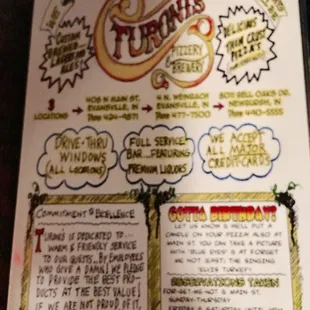 "CUSTOM
BREWED"
LAGERS &
ALES
TURONI'S
PIZZERY
&
BREWERY
DELICIOUS
THIN CRUST
PIZZA'S
3
LOCATIONS
408 N. MAIN ST.
EVANSVILLE, IN
Phone 424-9871
4 N. WEINBACH
EVANSVILLE, IN
Phone 477-7500
8011 BELL OAKS DR.
NEWBURGH, IN
Phone 490-5555
DRIVE-THRU
WINDOWS
(ALL LOCATIONS)
FULL SERVICE
BAR...FEATURING
PREMIUM LIQUORS
WE ACCEPT
ALL MAJOR
CREDIT-CARDS
COMMITMENT TO EXCELLENCE
TURONIS IS DEDICATED TO...
WARM & FRIENDLY SERVICE
TO OUR GUESTS... BY EMPLOYEES
WHO GIVE A DAMN! WE PLEDGE
TO PROVIDE THE BEST PRO-
DUCTS AT THE BEST VALUE!
IF WE ARE NOT PROUD OF IT,
GOTTA BIRTHDAY?
LET US KNOW & WE'LL PUT A
CANDLE ON YOUR PIZZA! ALSO AT
MAIN ST. YOU CAN TAKE A PICTURE
WITH "BLUE EYES" & AT FORGET
ME NOT EAST; THE SINGING
"ELVIS TURKEY"!
RESERVATIONS TAKEN
FOR-GET-ME-NOT & MAIN ST.
SUNDAY-THURSDAY